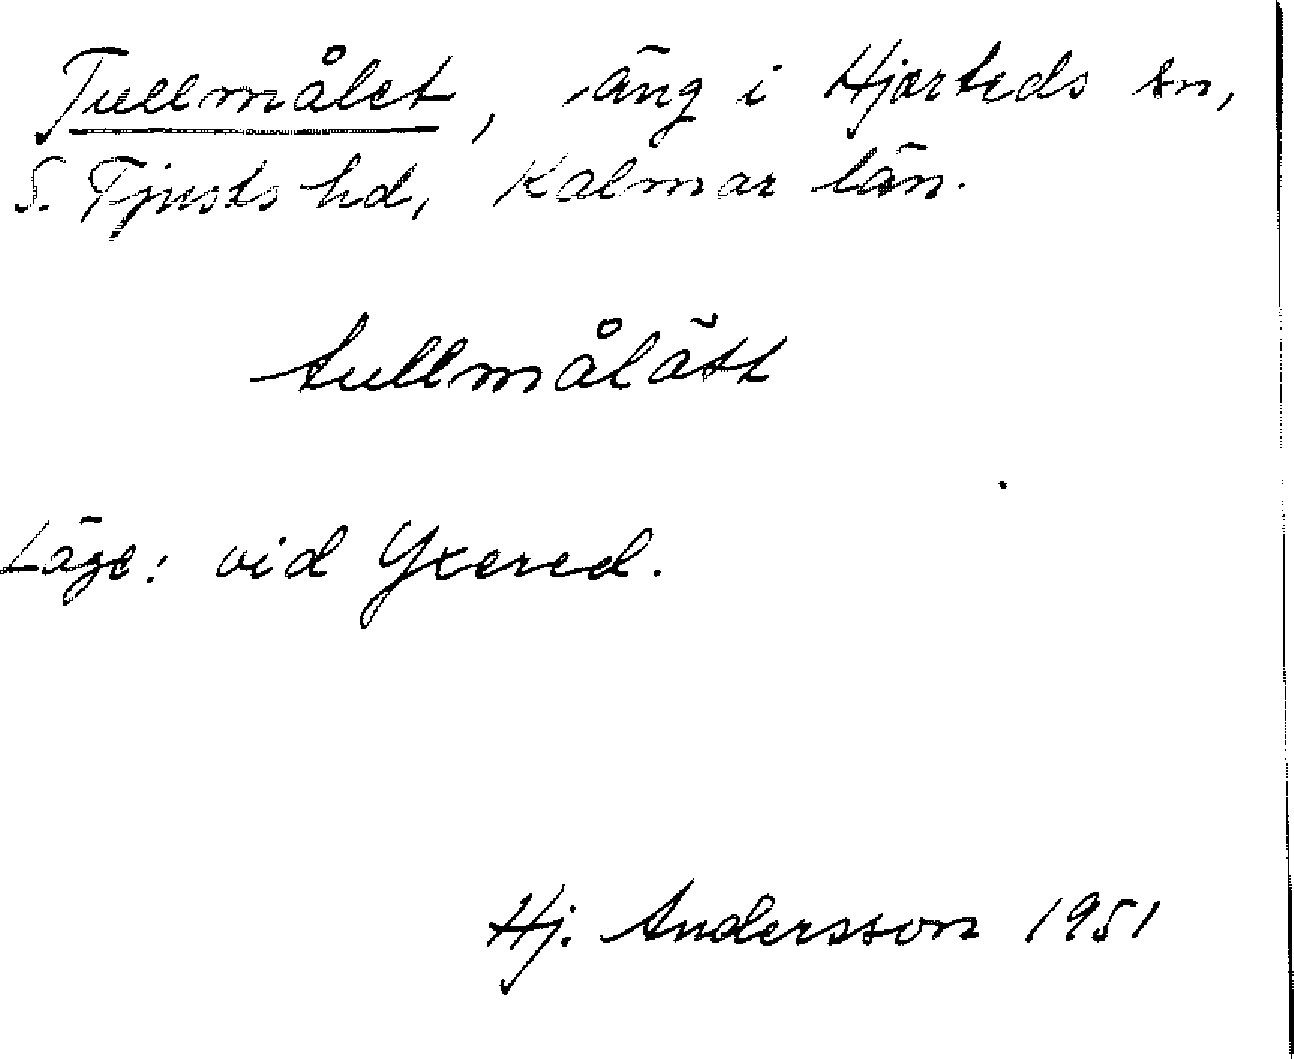 Tullmålet, äng i Hjorteds sn,
S. Tjusts hd, Kalmar län.
tullmålätt
Läge: vid Yxered.
Hj. Andersson 1951